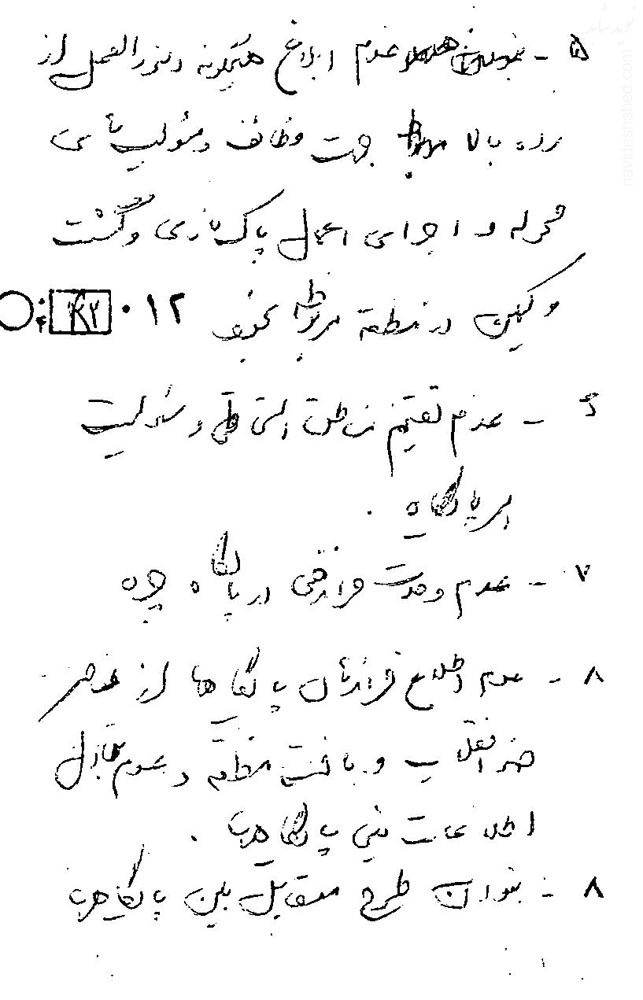 ۵ - نبودن و عدم ابلاغ هیچگونه دستورالعمل از
رده بالا جهت وظائف و مسئولیتهای
محوله و اجرای اعمال پاک سازی و گشت
و کمین در منطقه مربوطه ۰۱۲
۶ - عدم تقسیم مناطق استحفاظی و مسئولیت
هر پایگاه .
۷ - عدم وحدت فرماندهی در پایگاه
۸ - عدم اطلاع فرماندهان پایگاهها از عناصر
ضد انقلاب و بافت منطقه و عدم تبادل
اطلاعات بین پایگاهها .
۸ - نبودن طرح متقابل بین پایگاهها
navideshahed.com